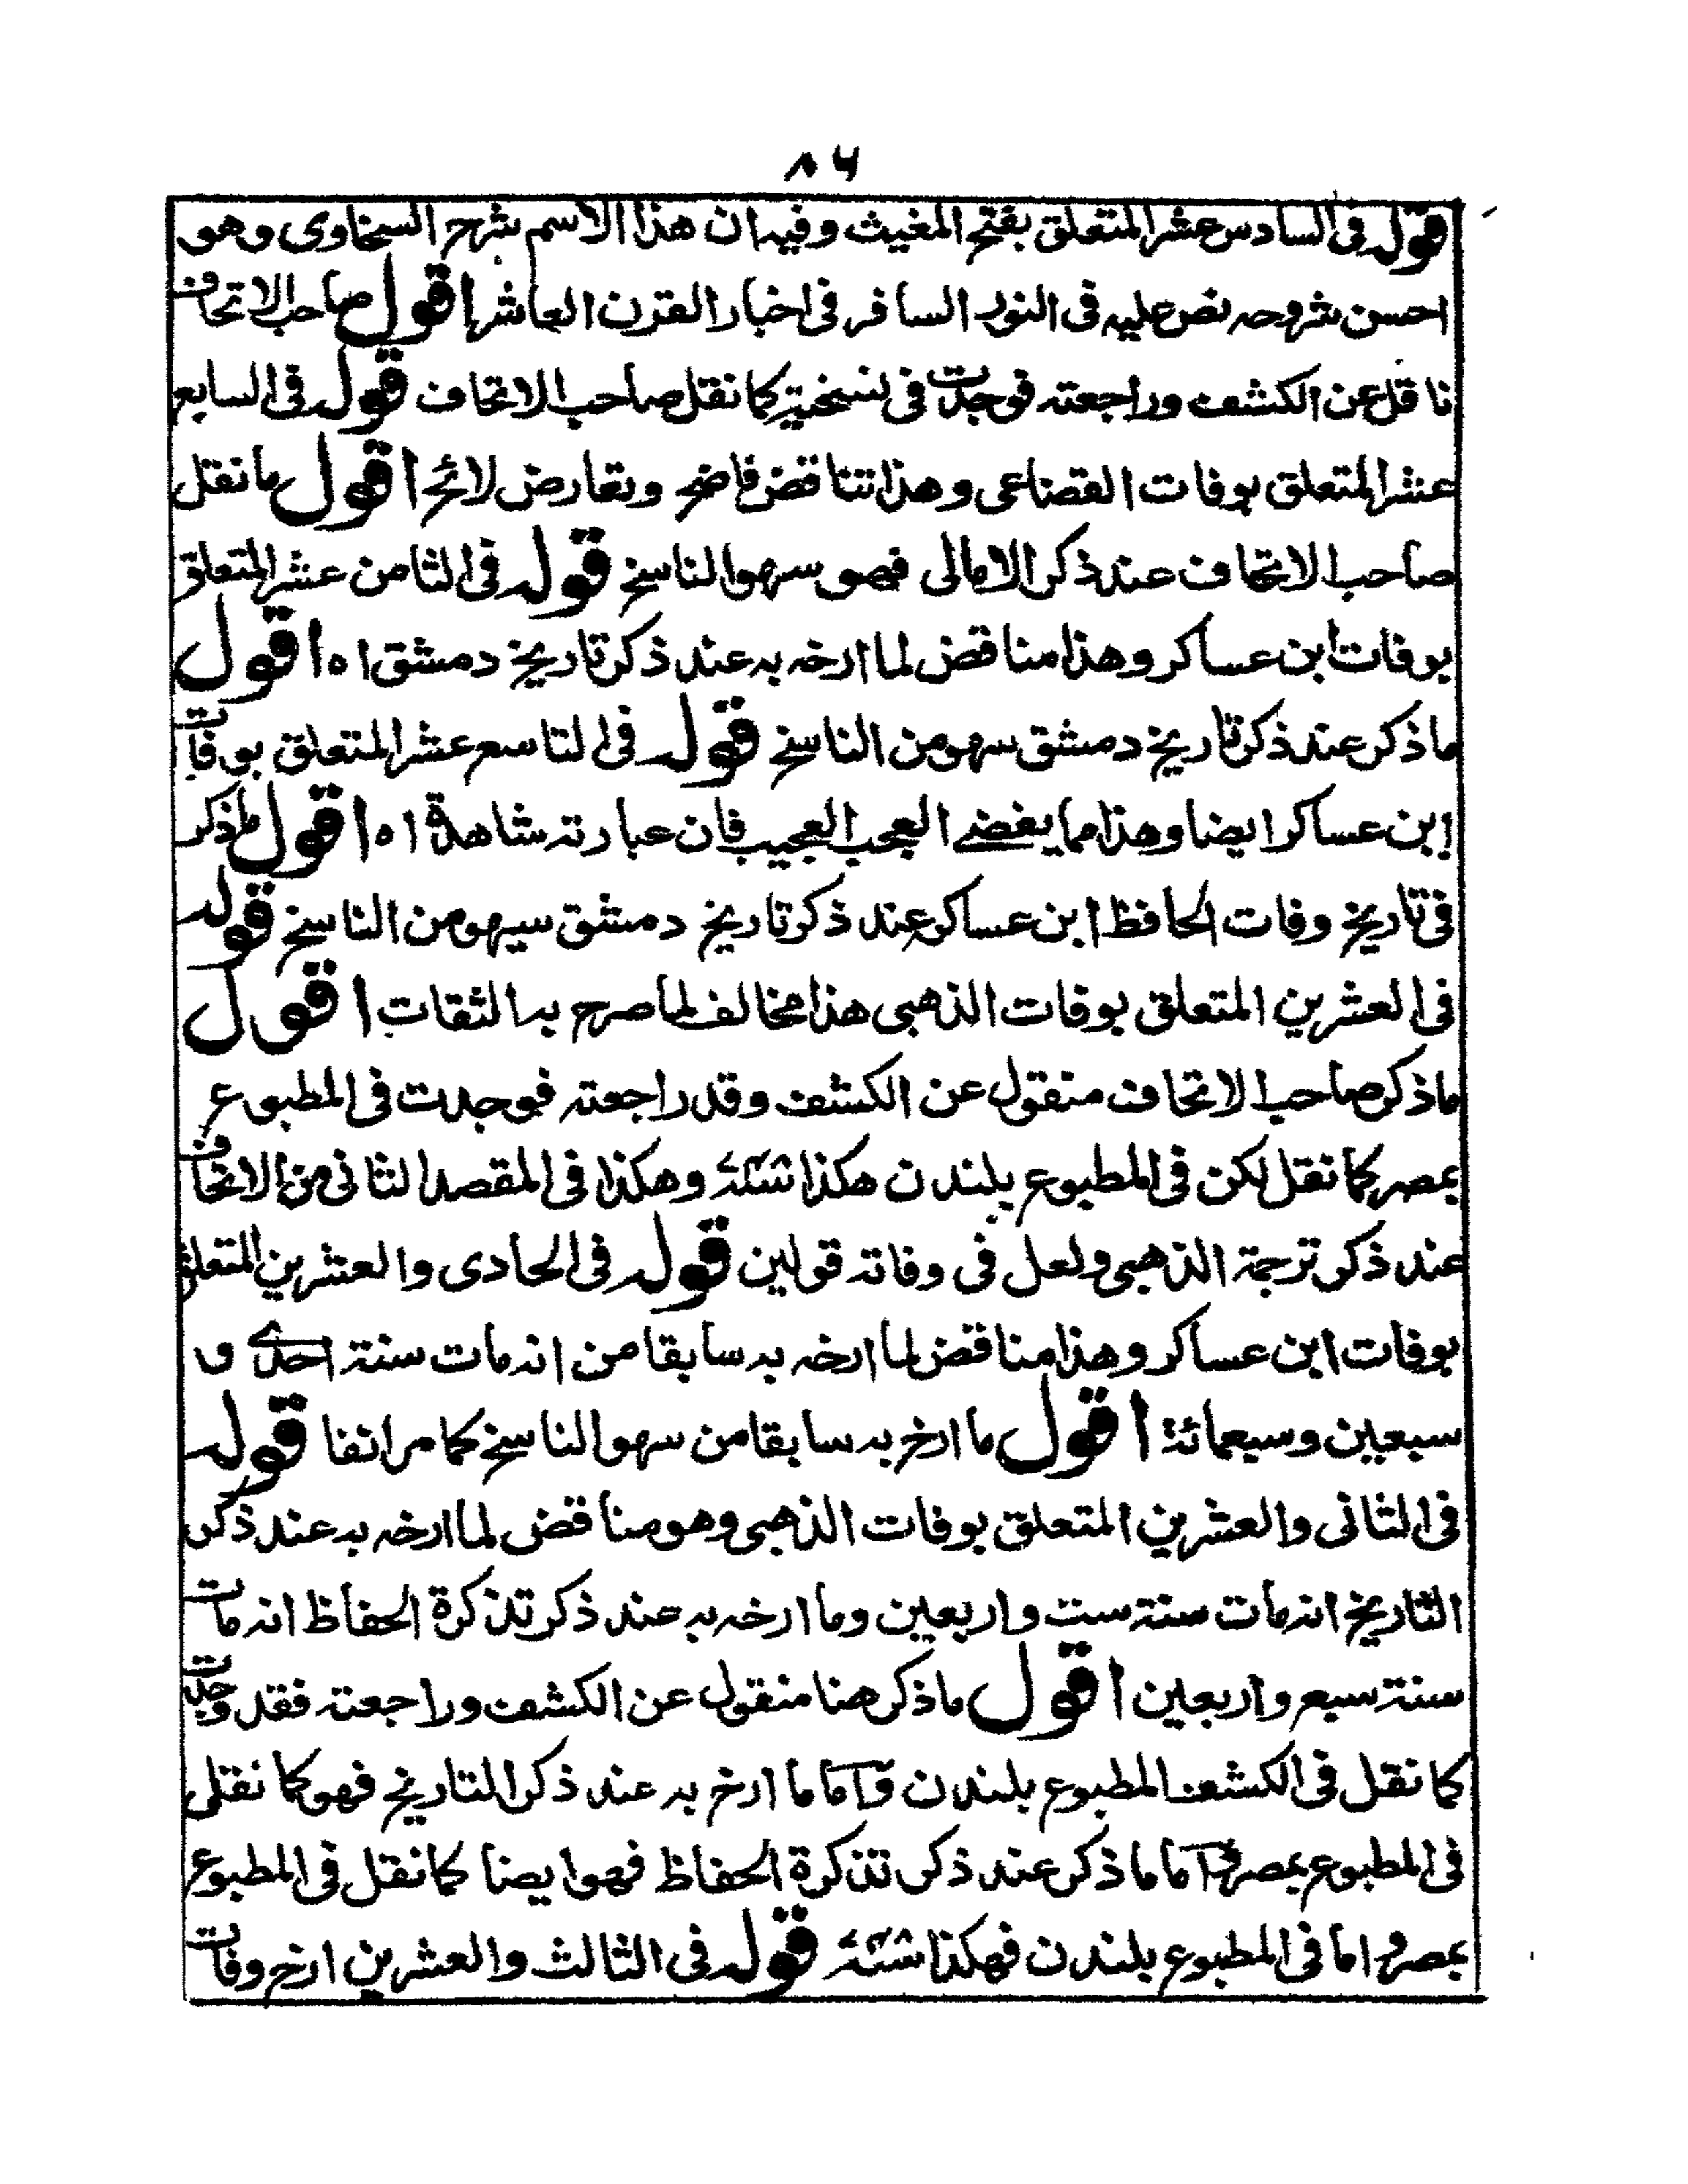 ٨٦
قوله فى السادس عشر المتعلق بفتح المغيث وفيه ان هذا الاسم شرح السخاوى وهو
احسن شروحه نص عليه فى النور السافر فى اخبار القرن العاشر اقول صاحب الاتحاف
ناقل عن الكشف وراجعته فوجدت فى نسختيه كما نقل صاحب الاتحاف قوله فى السابع
عشر المتعلق بوفات القضاعى وهذا تناقض فاضح وتعارض لائح اقول ما نقل
صاحب الاتحاف عند ذكر الامالى فهو سهو الناسخ قوله فى الثامن عشر المتعلق
بوفات ابن عساكر وهذا مناقض لما ارخه به عند ذكر تاريخ دمشق اه اقول
ما ذكر عند ذكر تاريخ دمشق سهو من الناسخ قوله فى التاسع عشر المتعلق بوفات
ابن عساكر ايضا وهذا مما يفضے العجب العجيب فان عبارته شاهدة اه اقول ما ذكر
فى تاريخ وفات الحافظ ابن عساكر عند ذكر تاريخ دمشق سهو من الناسخ قوله
فى العشرين المتعلق بوفات الذهبى هذا مخالف لما صرح به الثقات اقول
ما ذكر صاحب الاتحاف منقول عن الكشف وقد راجعته فوجدت فى المطبوع
بمصر كما نقل لكن فى المطبوع بلندن هكذا وهكذا فى المقصد الثانى من الاتحاف
عند ذكر ترجمة الذهبى ولعل فى وفاته قولين قوله فى الحادى والعشرين المتعلق
بوفات ابن عساكر وهذا مناقض لما ارخه به سابقا من انه مات سنة احدے و
سبعين وسبعمائة اقول ما ارخ به سابقا من سهو الناسخ كما مر انفا قوله
فى الثانى والعشرين المتعلق بوفات الذهبى وهو مناقض لما ارخه به عند ذكر
التاريخ انه مات سنة ست واربعين وما ارخه به عند ذكر تذكرة الحفاظ انه مات
سنة سبع واربعين اقول ما ذكر هنا منقول عن الكشف وراجعته فقد وجدت
كما نقل فى الكشف المطبوع بلندن واما ما ارخ به عند ذكر التاريخ فهو كما نقل
فى المطبوع بمصر واما ما ذكر عند ذكر تذكرة الحفاظ فهو ايضا كما نقل فى المطبوع
بمصر واما فى المطبوع بلندن فهكذا قوله فى الثالث والعشرين ارخ وفات